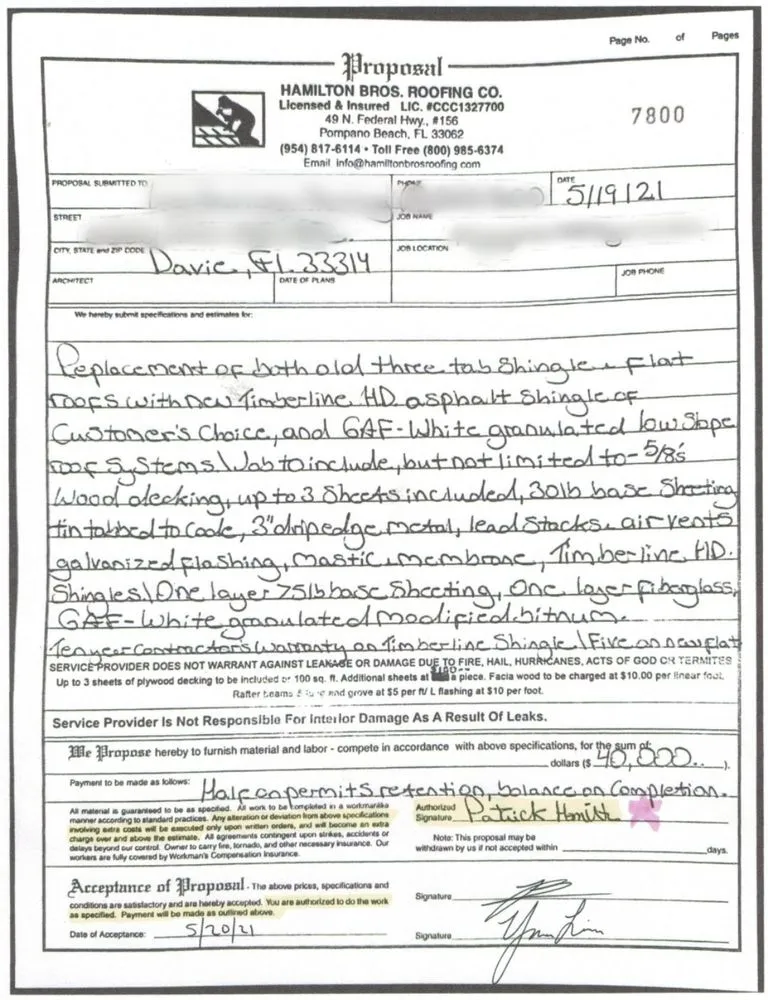 Page No. of Pages
Proposal
HAMILTON BROS. ROOFING CO.
Licensed & Insured LIC. #CCC1327700
49 N. Federal Hwy., #156
Pompano Beach, FL 33062
(954) 817-6114 • Toll Free (800) 985-6374
Email info@hamiltonbrosroofing.com
7800
PROPOSAL SUBMITTED TO
PHONE
DATE
5/19/21
STREET
JOB NAME
CITY, STATE and ZIP CODE
Davie, Fl. 33314
JOB LOCATION
ARCHITECT
DATE OF PLANS
JOB PHONE
We hereby submit specifications and estimates for:
Replacement of both old three tab Shingle & flat
roofs with new Timberline HD asphalt Shingle of
Customer's Choice, and GAF-White granulated low Slope
roof Systems\Job to include, but not limited to- 5/8's
Wood decking, up to 3 Sheets included, 30lb base Sheeting
tin tabbed to Code, 3" dripedge metal, lead Stacks & air vents
galvanized flashing, mastic & membrane, Timberline HD.
Shingles\One layer 75lb base Sheeting, One layer fiberglass,
GAF-White granulated modified bitnum.
Ten year Contractors Warranty on Timberline Shingle\Five on new flat
SERVICE PROVIDER DOES NOT WARRANT AGAINST LEAKAGE OR DAMAGE DUE TO FIRE, HAIL, HURRICANES, ACTS OF GOD OR TERMITES
Up to 3 sheets of plywood decking to be included or 100 sq. ft. Additional sheets at $100-- a piece. Facia wood to be charged at $10.00 per linear foot.
Rafter beams and grove at $5 per ft/ L flashing at $10 per foot.
Service Provider Is Not Responsible For Interior Damage As A Result Of Leaks.
We Propose hereby to furnish material and labor - compete in accordance with above specifications, for the sum of:
dollars ($ 40,000.. ).
Payment to be made as follows: Half on permits retention, balance on Completion.
All material is guaranteed to be as specified. All work to be completed in a workmanlike
manner according to standard practices. Any alteration or deviation from above specifications
involving extra costs will be executed only upon written orders, and will become an extra
charge over and above the estimate. All agreements contingent upon strikes, accidents or
delays beyond our control. Owner to carry fire, tornado, and other necessary insurance. Our
workers are fully covered by Workman's Compensation Insurance.
Authorized
Signature Patrick
Note: This proposal may be
withdrawn by us if not accepted within days.
Acceptance of Proposal - The above prices, specifications and
conditions are satisfactory and are hereby accepted. You are authorized to do the work
as specified. Payment will be made as outlined above.
Date of Acceptance: 5/20/21
Signature
Signature